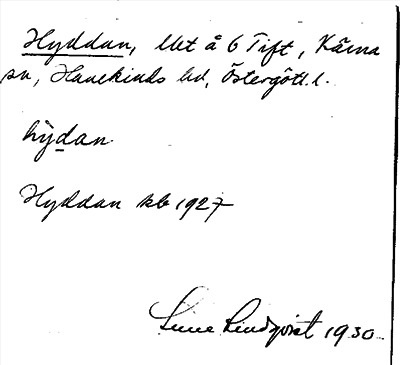 Hyddan, lht å 6 Tift, Kärna
sn, Hanekinds hd, Östergötl. l.
hỳdan
Hyddan kb 1927
Sune Lindqvist 1930